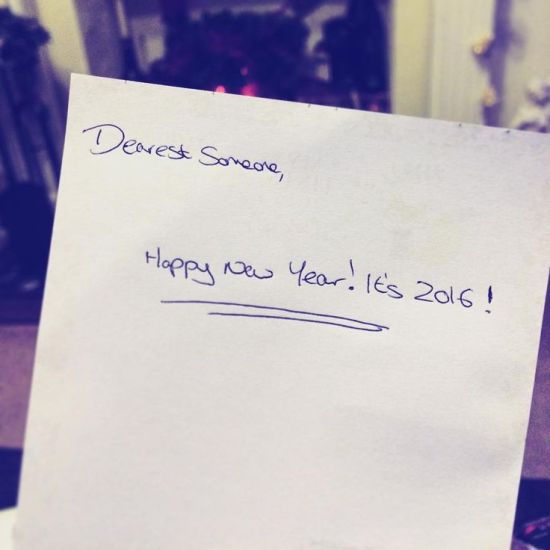 Dearest Someone,
Happy New Year! It's 2016!